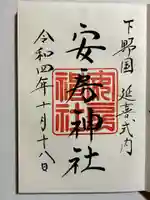 下野国 延喜式内
安房神社
令和四年十月十八日